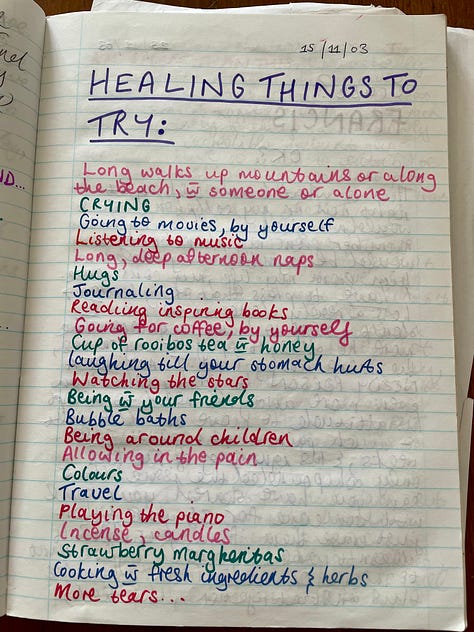 15/11/03
HEALING THINGS TO
TRY:
Long walks up mountains or along
the beach, w̄ someone or alone
CRYING
Going to movies, by yourself
Listening to music
Long, deep afternoon naps
Hugs
Journaling
Reading inspiring books
Going for coffee, by yourself
Cup of rooibos tea w̄ honey
laughing till your stomach hurts
Watching the stars
Being w̄ your friends
Bubble baths
Being around children
Allowing in the pain
Colours
Travel
Playing the piano
Incense, candles
Strawberry margheritas
Cooking w̄ fresh ingredients & herbs
More tears...